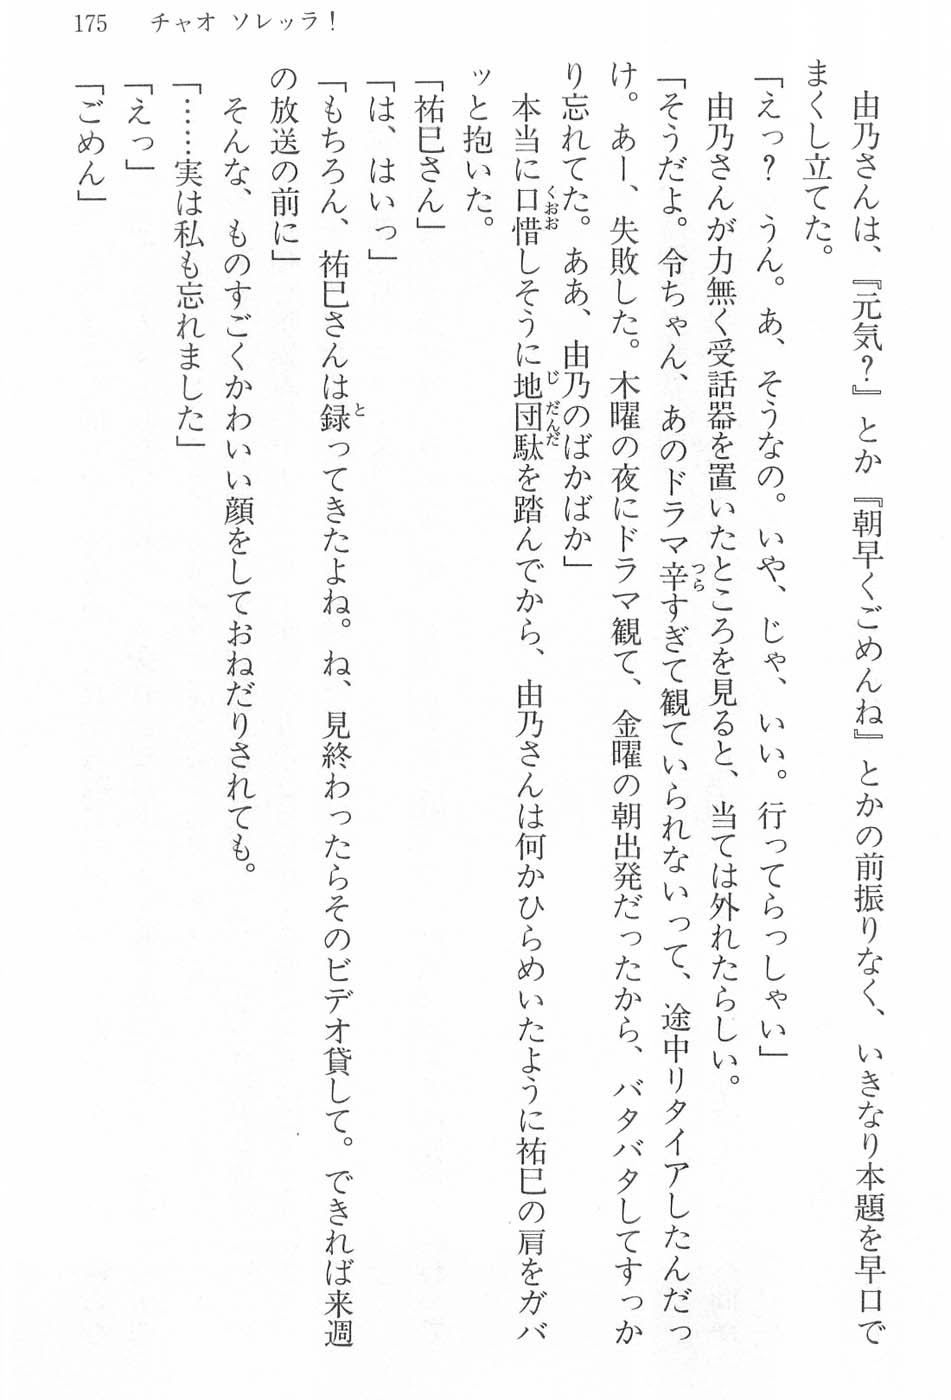 175　チャオ ソレッラ！
　由乃さんは、『元気？』とか『朝早くごめんね』とかの前振りなく、いきなり本題を早口で
まくし立てた。
「えっ？　うん。あ、そうなの。いや、じゃ、いい。行ってらっしゃい」
　由乃さんが力無く受話器を置いたところを見ると、当ては外れたらしい。
「そうだよ。令ちゃん、あのドラマ辛すぎて観ていられないって、途中リタイアしたんだっ
け。あー、失敗した。木曜の夜にドラマ観て、金曜の朝出発だったから、バタバタしてすっか
り忘れてた。ああ、由乃のばかばか」
　本当に口惜しそうに地団駄を踏んでから、由乃さんは何かひらめいたように祐巳の肩をガバ
ッと抱いた。
「祐巳さん」
「は、はいっ」
「もちろん、祐巳さんは録ってきたよね。ね、見終わったらそのビデオ貸して。できれば来週
の放送の前に」
　そんな、ものすごくかわいい顔をしておねだりされても。
「……実は私も忘れました」
「えっ」
「ごめん」